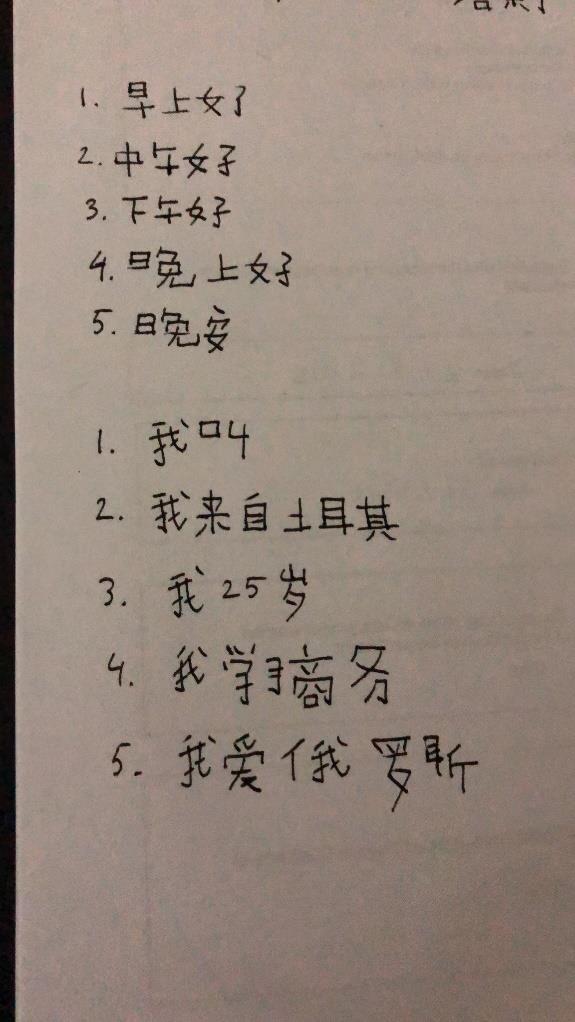 1. 早上好
2. 中午好
3. 下午好
4. 晚上好
5. 晚安
1. 我叫
2. 我来自土耳其
3. 我25岁
4. 我学习商务
5. 我爱俄罗斯